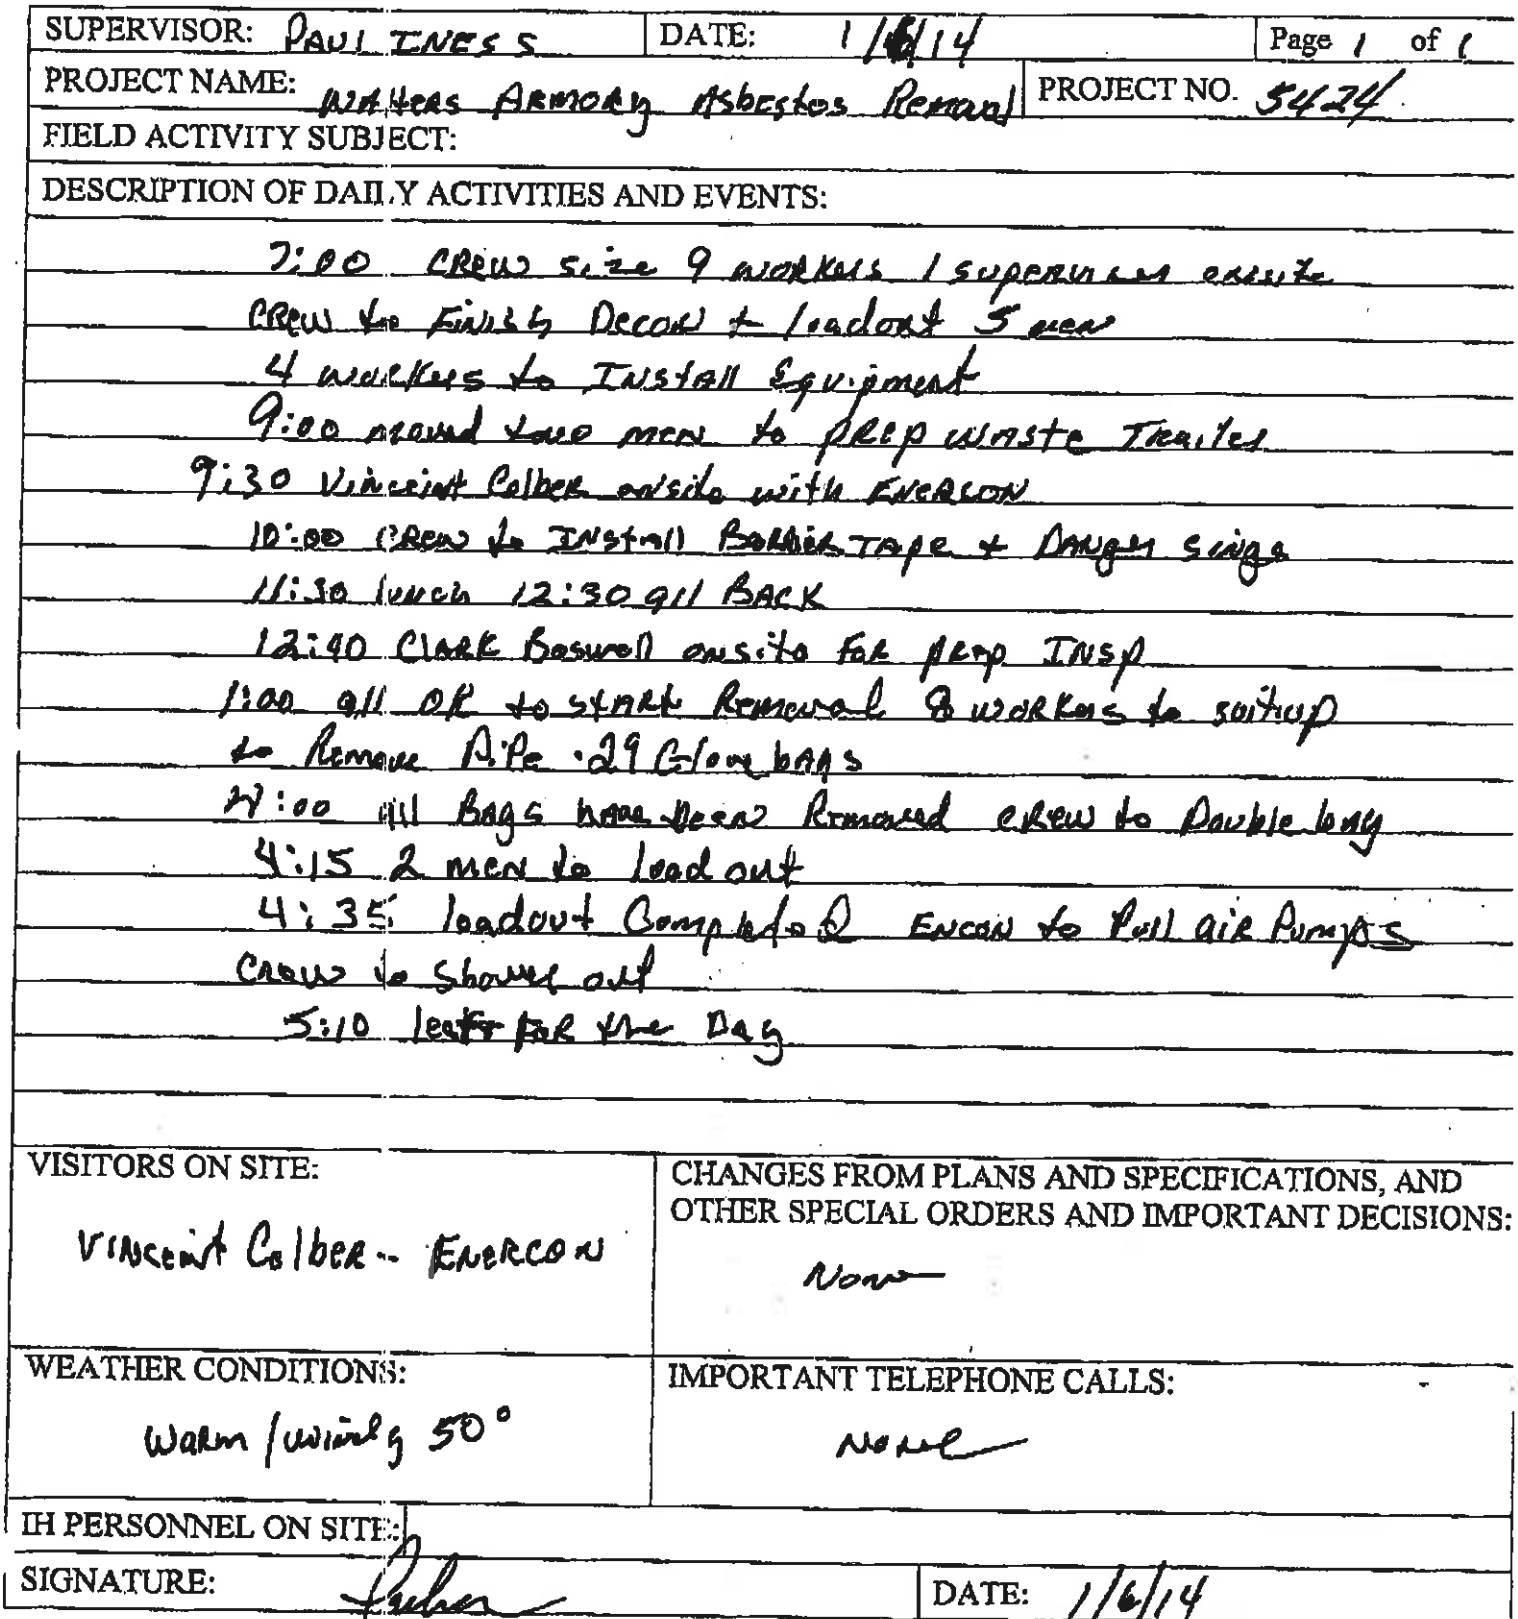 SUPERVISOR: PAUL INESS DATE: 1/6/14 Page 1 of 1
PROJECT NAME: WATERS ARMORY Asbestos Removal PROJECT NO. 5424
FIELD ACTIVITY SUBJECT:
DESCRIPTION OF DAILY ACTIVITIES AND EVENTS:
7:00 CREW size 9 workers 1 supervisor onsite
CREW to Finish Decon + loadout 5 men
4 workers to INSTALL Equipment
9:00 moved two men to PREP WASTE Trailer
9:30 Vinceint Colber onsite with ENERCON
10:00 CREW to INStall Barrier TAPE + DANger sings
11:30 lunch 12:30 all BACK
12:40 CLARK Boswell onsite FOR prep INSP
1:00 all OK to START Removal 8 workers to suitup
to Remove PiPe 29 Glove bags
4:00 all Bags have been Removed CREW to Double bag
4:15 2 men to load out
4:35 loadout Completed ENCON to Pull aiR Pumps
Crew to shower out
5:10 left FOR the Day
VISITORS ON SITE:
VINceint Colber -- ENERCON
CHANGES FROM PLANS AND SPECIFICATIONS, AND
OTHER SPECIAL ORDERS AND IMPORTANT DECISIONS:
None
WEATHER CONDITIONS:
Warm / windy 50°
IMPORTANT TELEPHONE CALLS:
None
IH PERSONNEL ON SITE:
SIGNATURE: DATE: 1/6/14